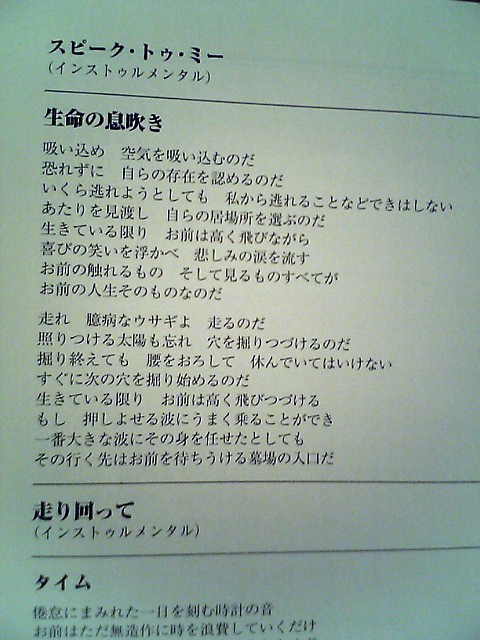 スピーク・トゥ・ミー
(インストゥルメンタル)
生命の息吹き
吸い込め　空気を吸い込むのだ
恐れずに　自らの存在を認めるのだ
いくら逃れようとしても　私から逃れることなどできはしない
あたりを見渡し　自らの居場所を選ぶのだ
生きている限り　お前は高く飛びながら
喜びの笑いを浮かべ　悲しみの涙を流す
お前の触れるもの　そして見るものすべてが
お前の人生そのものなのだ
走れ　臆病なウサギよ　走るのだ
照りつける太陽も忘れ　穴を掘りつづけるのだ
掘り終えても　腰をおろして　休んでいてはいけない
すぐに次の穴を掘り始めるのだ
生きている限り　お前は高く飛びつづける
もし　押しよせる波にうまく乗ることができ
一番大きな波にその身を任せたとしても
その行く先はお前を待ちうける墓場の入口だ
走り回って
(インストゥルメンタル)
タイム
倦怠にまみれた一日を刻む時計の音
お前はただ無造作に時を浪費していくだけ